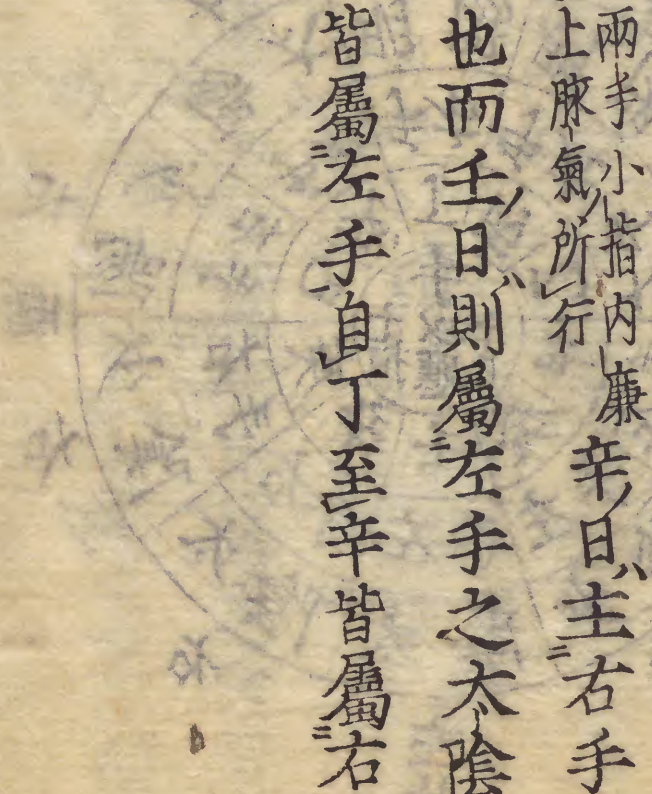 兩手小指内廉
上脉氣所行
辛日主右手
也而壬日則屬左手之太陰
皆屬左手自丁至辛皆屬右